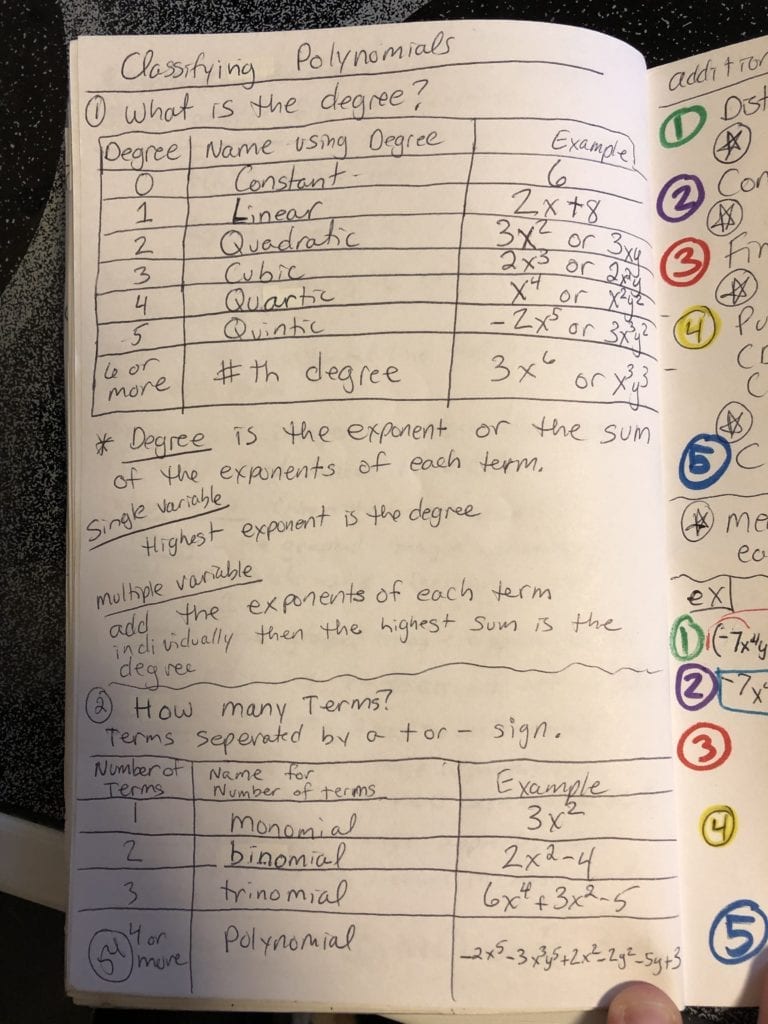 Classifying Polynomials
① What is the degree?
Degree Name using Degree Example
0 Constant 6
1 Linear 2x+8
2 Quadratic 3x² or 3xy
3 Cubic 2x³ or 2x²y
4 Quartic x⁴ or x²y²
5 Quintic -2x⁵ or 3x³y²
6 or more #th degree 3x⁶ or x³y³
* Degree is the exponent or the sum
of the exponents of each term.
Single variable
Highest exponent is the degree
multiple variable
add the exponents of each term
individually then the highest sum is the
degree
② How many Terms?
Terms seperated by a + or - sign.
Number of Terms Name for Number of terms Example
1 monomial 3x²
2 binomial 2x²-4
3 trinomial 6x⁴+3x²-5
4 or more Polynomial -2x⁵-3x³y⁵+2x²-2y²-5y+3
54
addition
① Dist
② Com
③ Fin
④ Pu
C
⑤ C
me
ea
ex
① (-7x⁴y
② -7x⁴
③
④
⑤